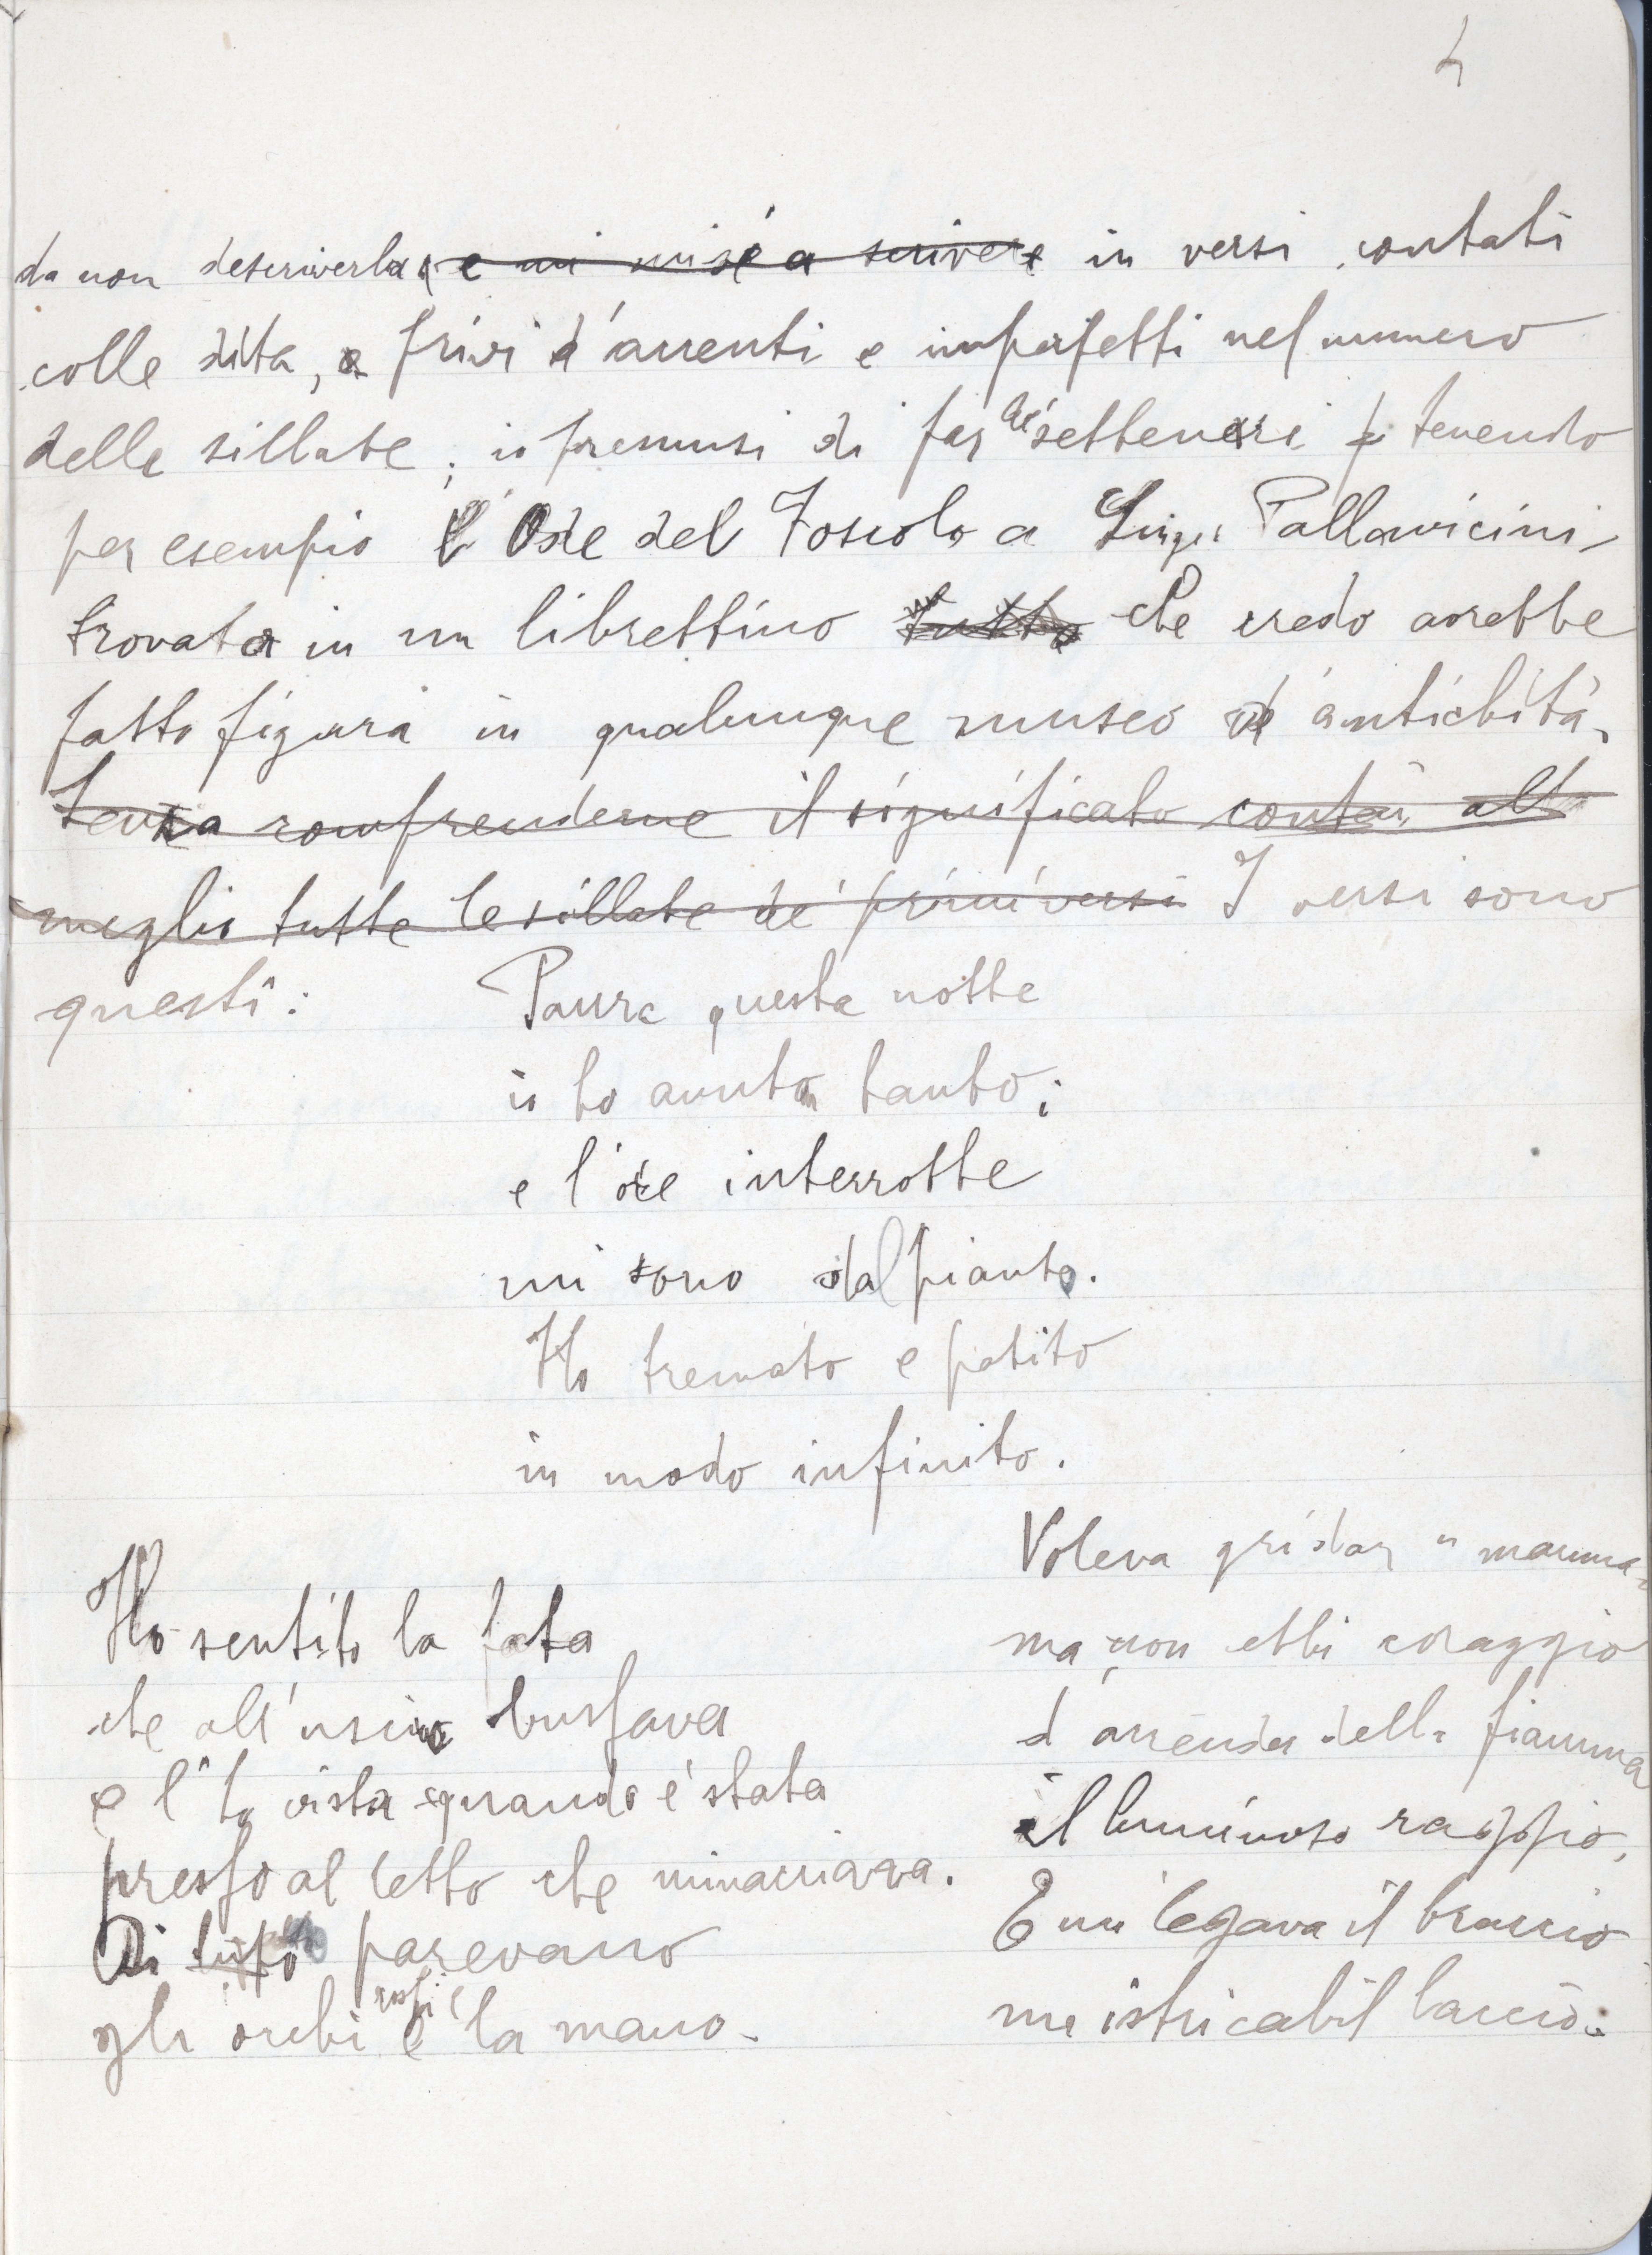 4
da non descriverla, e mi misi a scrivere in versi contati
colle dita, e privi d'accenti e imperfetti nel numero
delle sillabe; io presunsi di far de' settenari tenendo
per esempio l'Ode del Foscolo a Luigia Pallavicini,
trovata in un librettino che credo avrebbe
fatto figura in qualunque museo d'antichità.
senza comprenderne il significato contai alla
meglio tutte le sillabe de' primi versi I versi sono
questi:
Paura questa notte
io ho avuto tanto;
e l'ore interrotte
mi sono dal pianto.
Ho tremato e patito
in modo infinito.
Ho sentito la fata
che all'uscio bussava
e l'ho vista quando è stata
presso al letto che minacciava.
Di tufo parevano
gli occhi e la mano.
Voleva gridar "mamma"
ma non ebbi coraggio
d'accender della fiamma
il luminoso raggio,
E mi legava il braccio
un istricabil laccio.